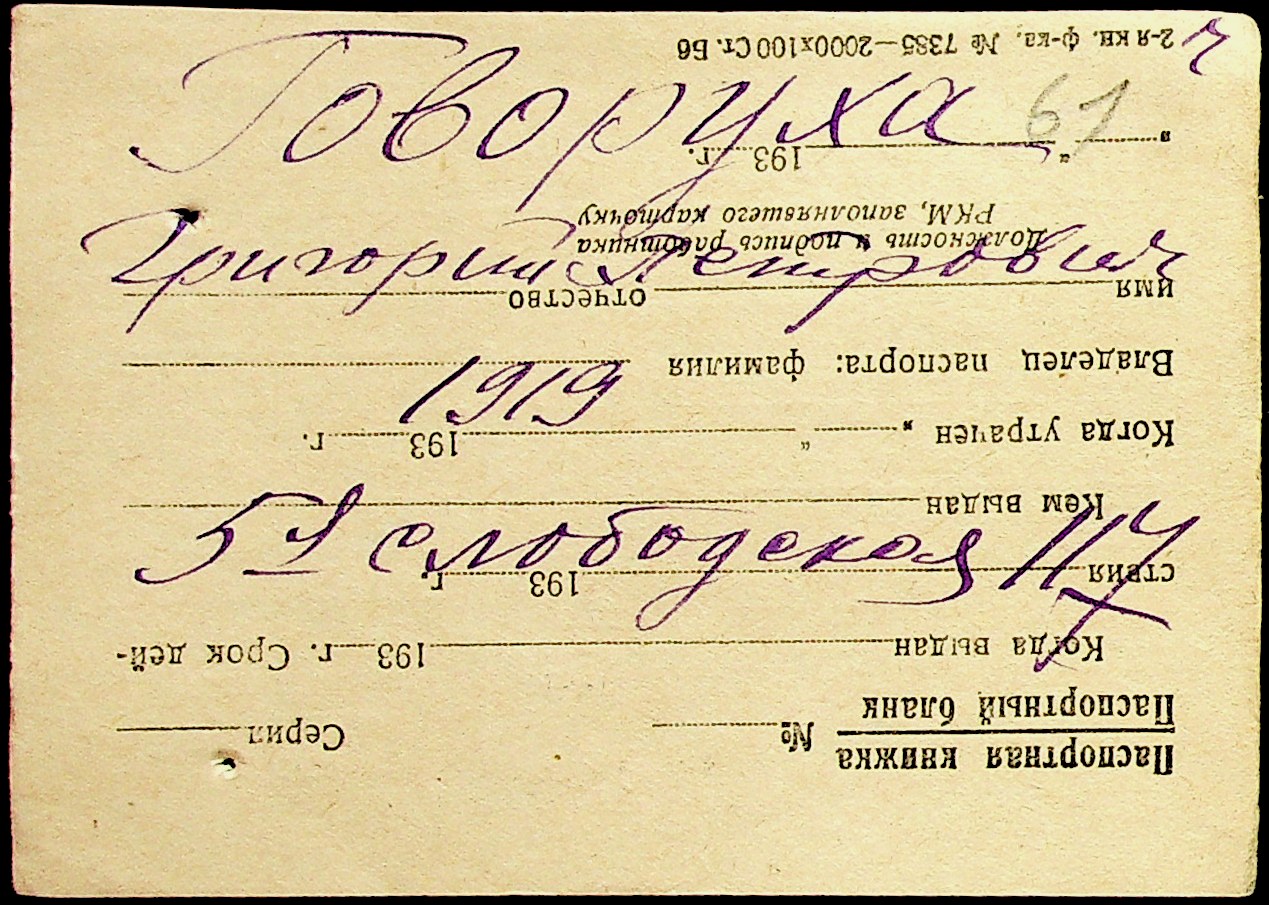 Говоруха 61
Григорий Петрович
1919
5я слободская 117
Паспортная книжка
Паспортный бланк
№ Серия
Когда выдан 193 г. Срок дей-
ствия 193 г.
Кем выдан
Когда утрачен „ “ 193 г.
Владелец паспорта: фамилия
имя отчество
Должность и подпись работника
РКМ, заполнявшего карточку
„ “ 193 г.
2-я кн. ф-ка. № 7385—2000х100 Ст. Б6